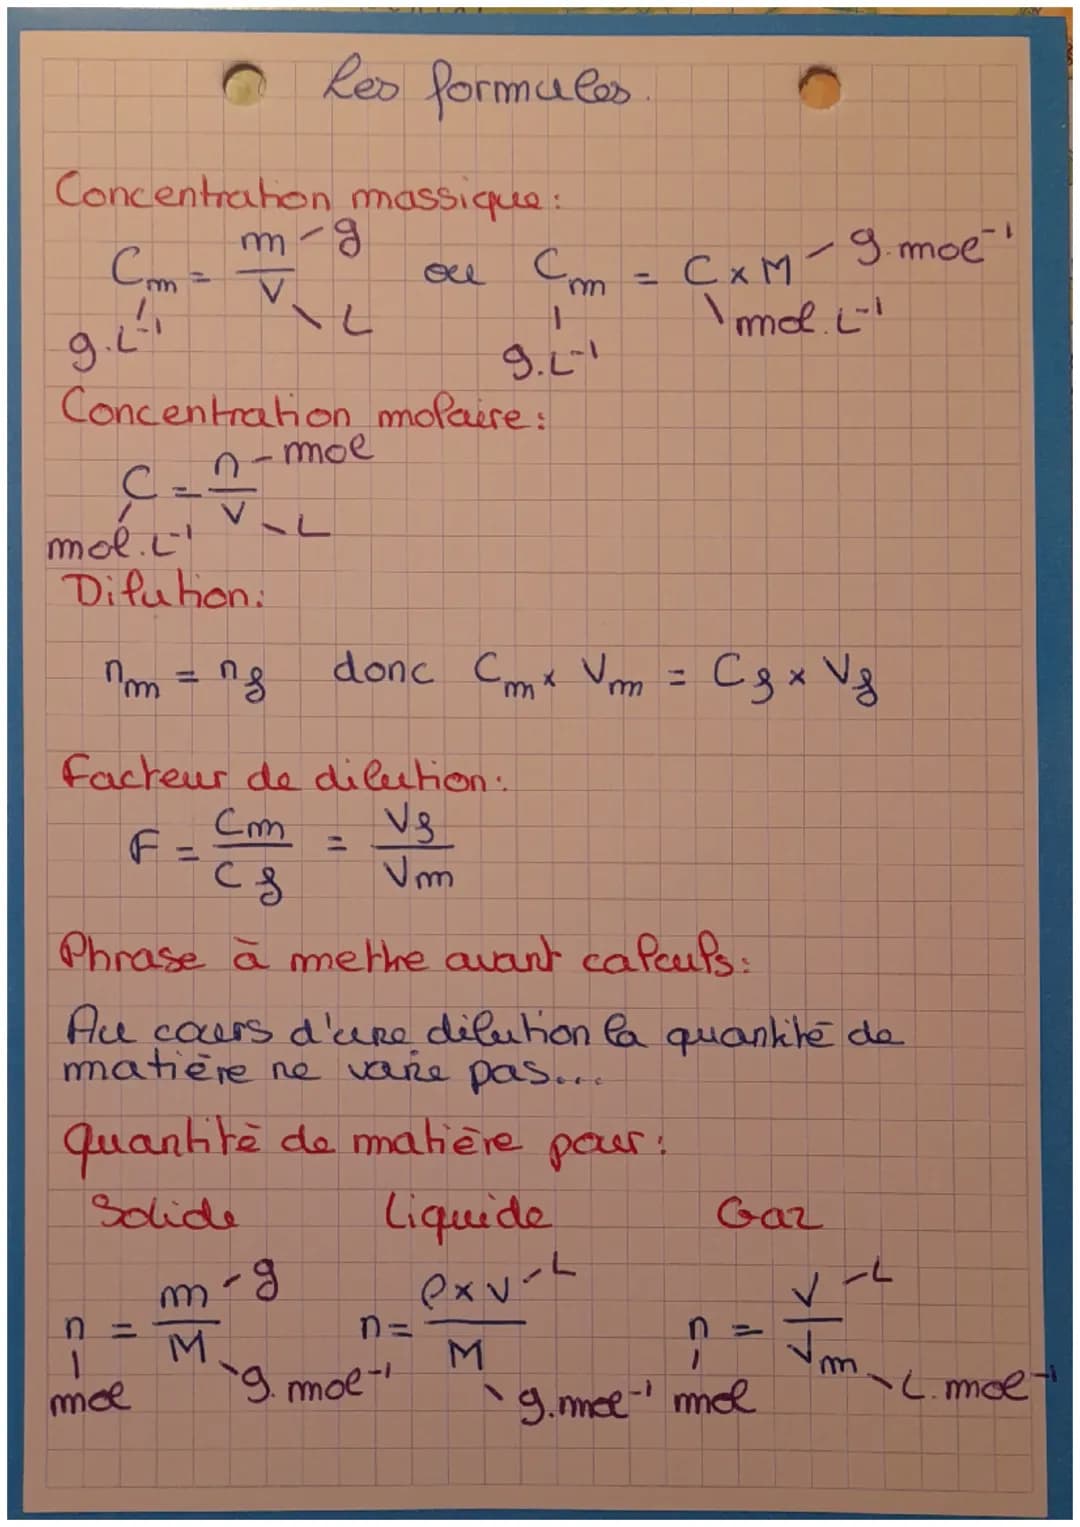 Les formules.
Concentration massique:
Cm = m/V - g ou Cm = C x M - g.mol⁻¹
g.L⁻¹ L g.L⁻¹ mol.L⁻¹
Concentration molaire:
C = n/V - mol
mol.L⁻¹ L
Dilution:
nm = nf donc Cm x Vm = Cf x Vf
Facteur de dilution:
F = Cm/Cf = Vf/Vm
Phrase à mettre avant calculs:
Au cours d'une dilution la quantité de
matière ne varie pas...
quantité de matière pour:
Solide Liquide Gaz
n = m/M - g n = ρ x V/M - L n = V/Vm - L
mol g.mol⁻¹ g.mol⁻¹ mol L.mol⁻¹